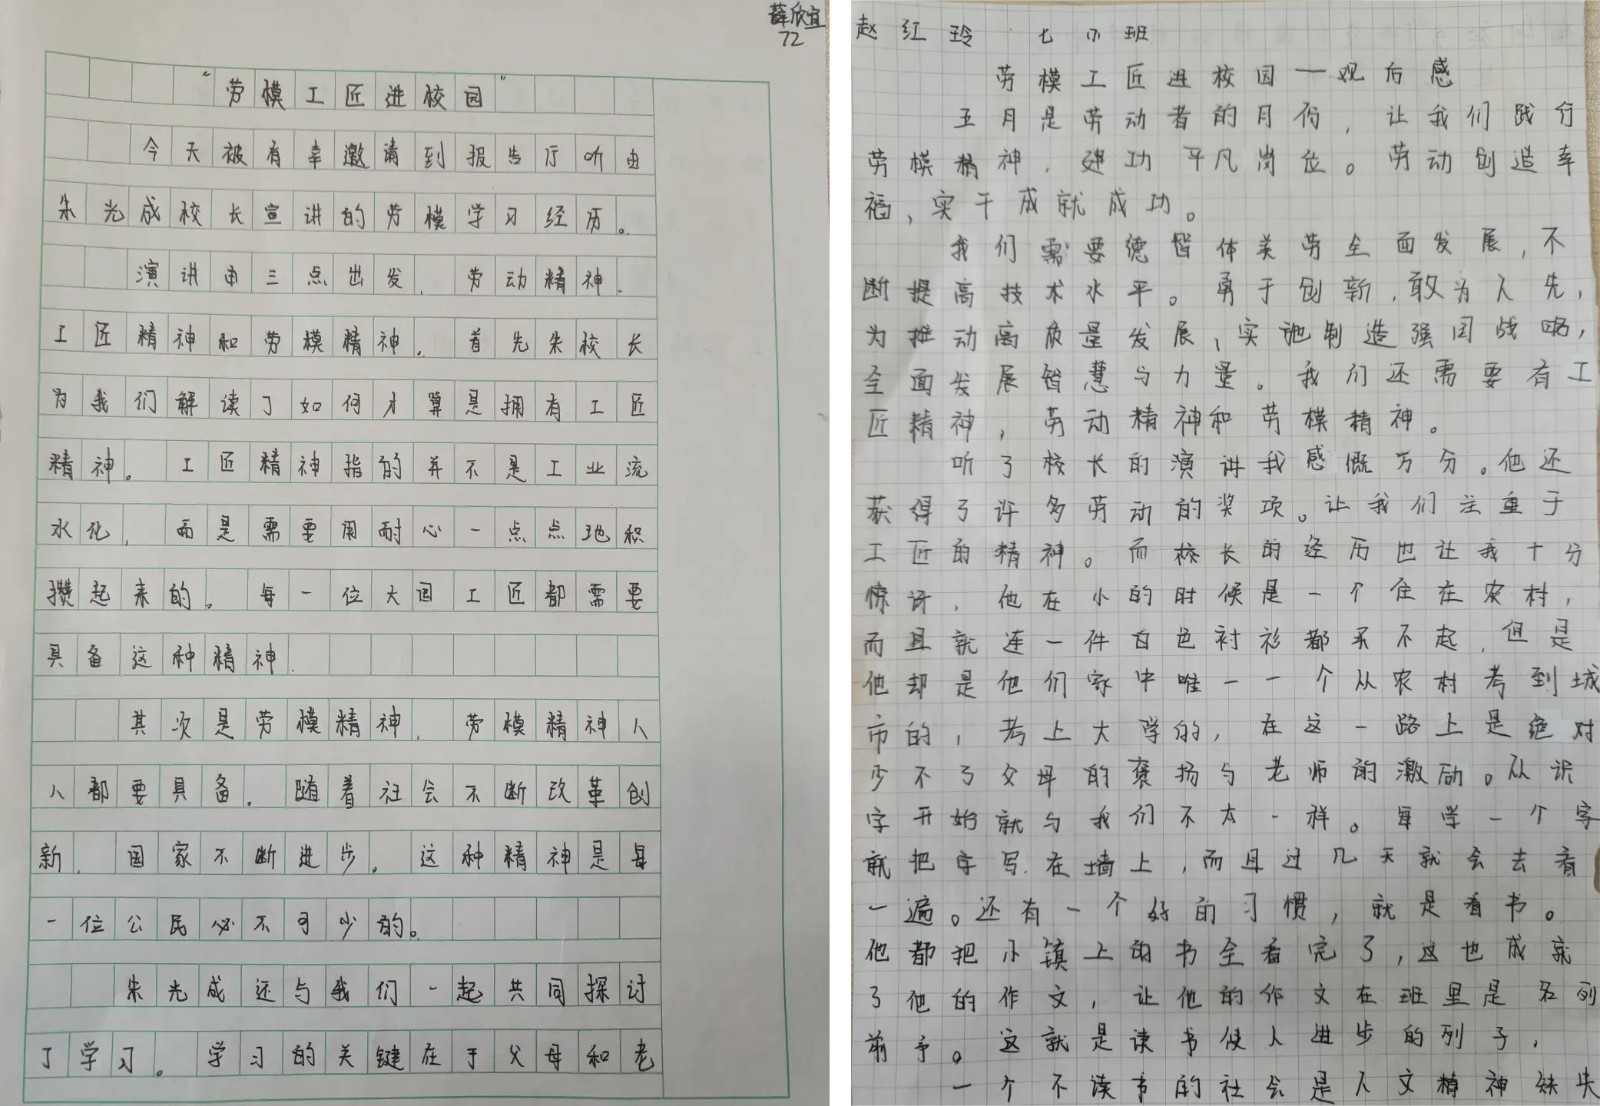 薛欣宜
72
“劳模工匠进校园”
今天被有幸邀请到报告厅听由
朱光成校长宣讲的劳模学习经历。
演讲由三点出发,劳动精神、
工匠精神和劳模精神。首先朱校长
为我们解读了如何才算是拥有工匠
精神。工匠精神指的并不是工业流
水化,而是需要用耐心一点点地积
攒起来的。每一位大国工匠都需要
具备这种精神.
其次是劳模精神.劳模精神人
人都要具备.随着社会不断改革创
新,国家不断进步。这种精神是每
一位公民必不可少的。
朱光成还与我们一起共同探讨
了学习。学习的关键在于父母和老
赵红玲 七(1)班
劳模工匠进校园—观后感
五月是劳动者的月份,让我们践行
劳模精神,建功平凡岗位。劳动创造幸
福,实干成就成功。
我们需要德智体美劳全面发展,不
断提高技术水平。勇于创新,敢为人先,
为推动高质量发展,实施制造强国战略,
全面发展智慧与力量。我们还需要有工
匠精神,劳动精神和劳模精神。
听了校长的演讲我感慨万分。他还
获得了许多劳动的奖项。让我们注重于
工匠的精神。而校长的经历也让我十分
惊讶,他在小的时候是一个住在农村,
而且就连一件白色衬衫都买不起,但是
他却是他们家中唯一一个从农村考到城
市的,考上大学的,在这一路上是绝对
少不了父母的褒扬与老师的激励。从识
字开始就与我们不太一样。每学一个字
就把字写在墙上,而且过几天就会去看
一遍。还有一个好的习惯,就是看书。
他都把小镇上的书全看完了,这也成就
了他的作文,让他的作文在班里是名列
前予。这就是读书使人进步的列子,
一个不读书的社会是人文精神缺失